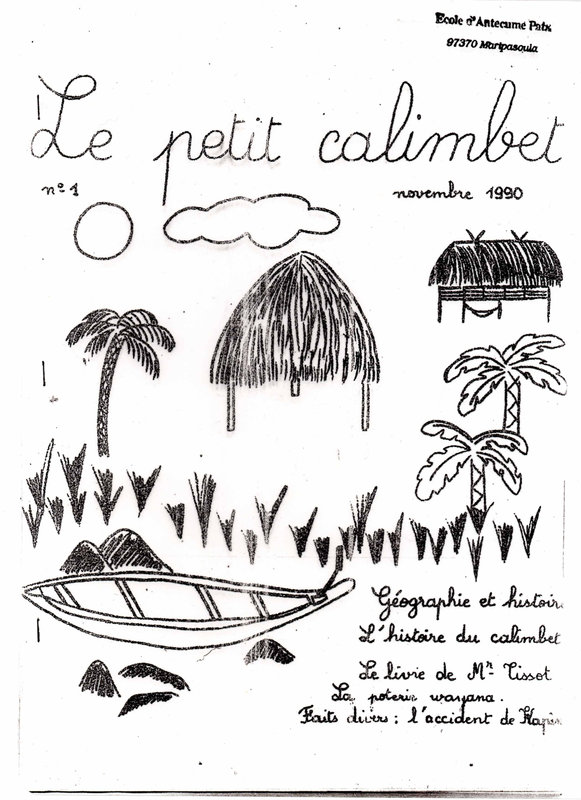 Ecole d'Antecume Pata
97370 Maripasoula
Le petit calimbet
n° 1
novembre 1990
Géographie et histoir
L'histoire du calimbet
Le livre de Mr Tissot
La poterie wayana.
Faits divers : l'accident de